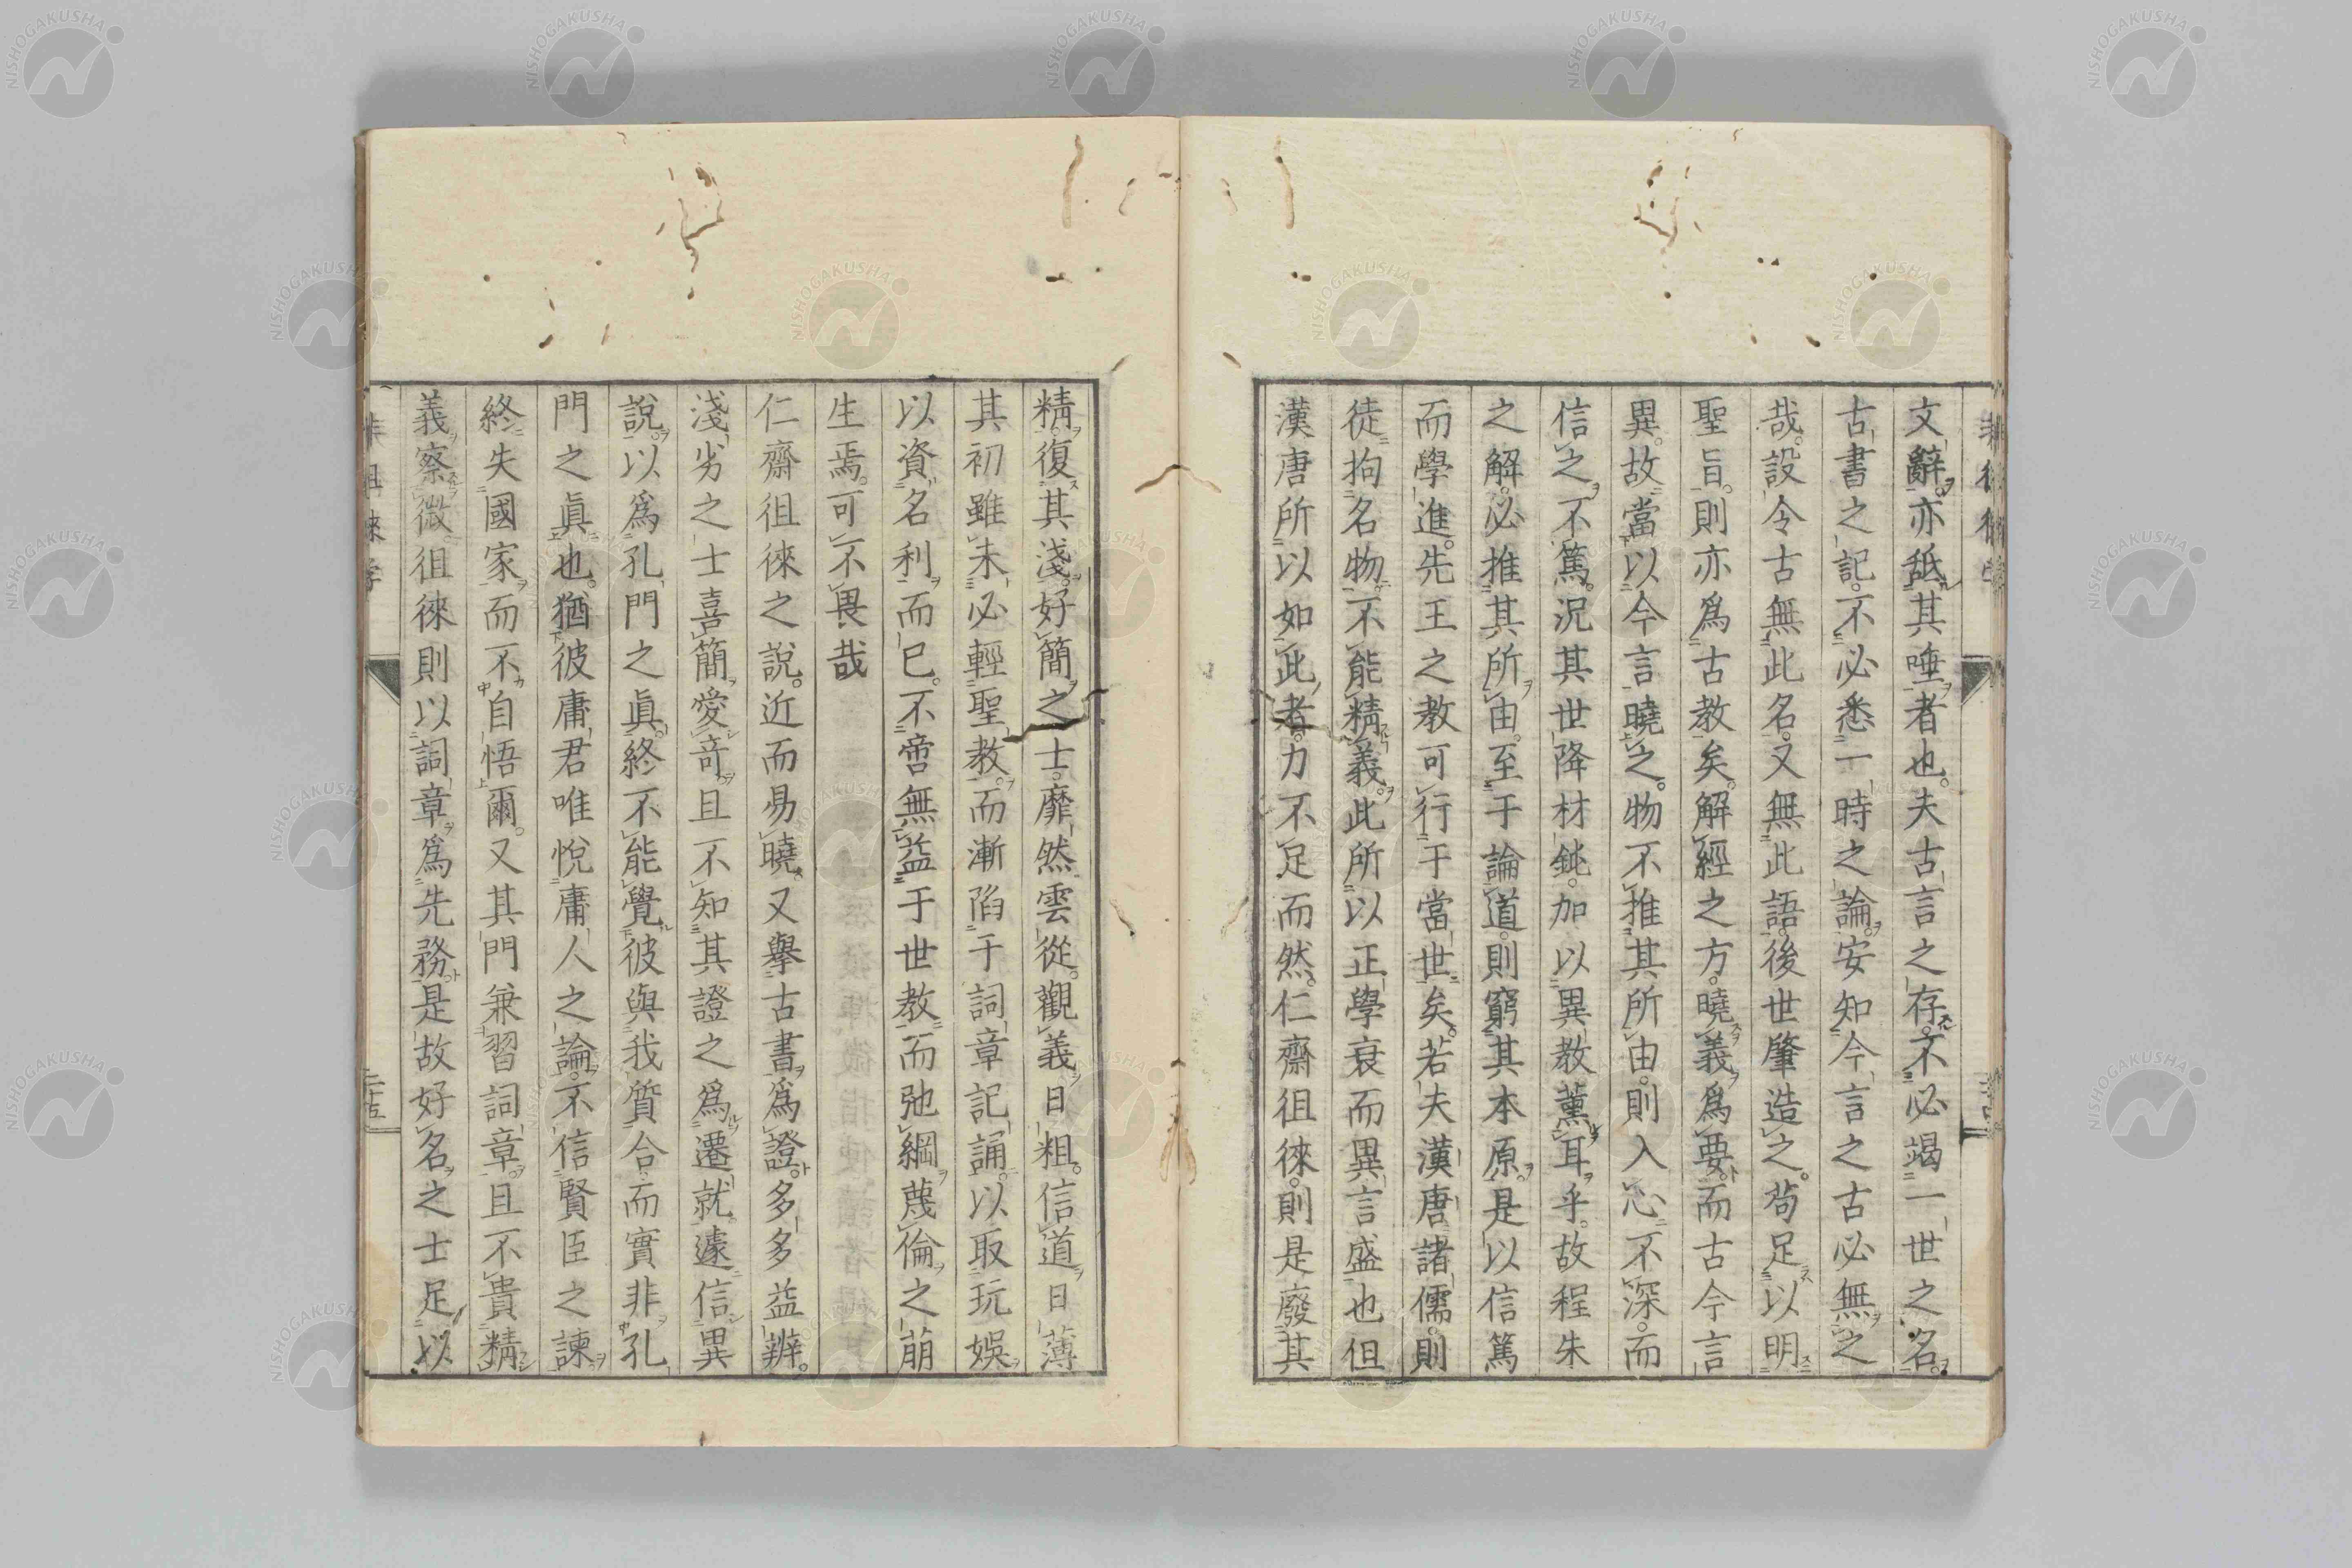 文辭亦舐其唾者也夫古言之存不必竭一世之名
古書之記不必悉一時之論安知今言之古必無之
哉設令古無此名又無此語後世肇造之苟足以明
聖旨則亦爲古教矣解經之方曉義爲要而古今言
異故當以今言曉之物不推其所由則入心不深而
信之不篤況其世降材鈍加以異教薰耳乎故程朱
之解必推其所由至于論道則窮其本原是以信篤
而學進先王之教可行于當世矣若夫漢唐諸儒則
徒拘名物不能精義此所以正學衰而異言盛也但
漢唐所以如此者力不足而然仁齋徂徠則是廢其
精復其淺好簡之士靡然雲從觀義日粗信道日薄
其初雖未必輕聖教而漸陷于詞章記誦以取玩娛
以資名利而已不啻無益于世教而弛綱蔑倫之萠
生焉可不畏哉
仁齋徂徠之說近而易曉又擧古書爲證多多益辨
淺劣之士喜簡愛奇且不知其證之爲遷就遽信異
說以爲孔門之眞終不能覺彼與我質合而實非孔
門之眞也猶彼庸君唯悅庸人之論不信賢臣之諫
終失國家而不自悟爾又其門兼習詞章且不貴精
義察微徂徠則以詞章爲先務是故好名之士足以
NISHOGAKUSHA